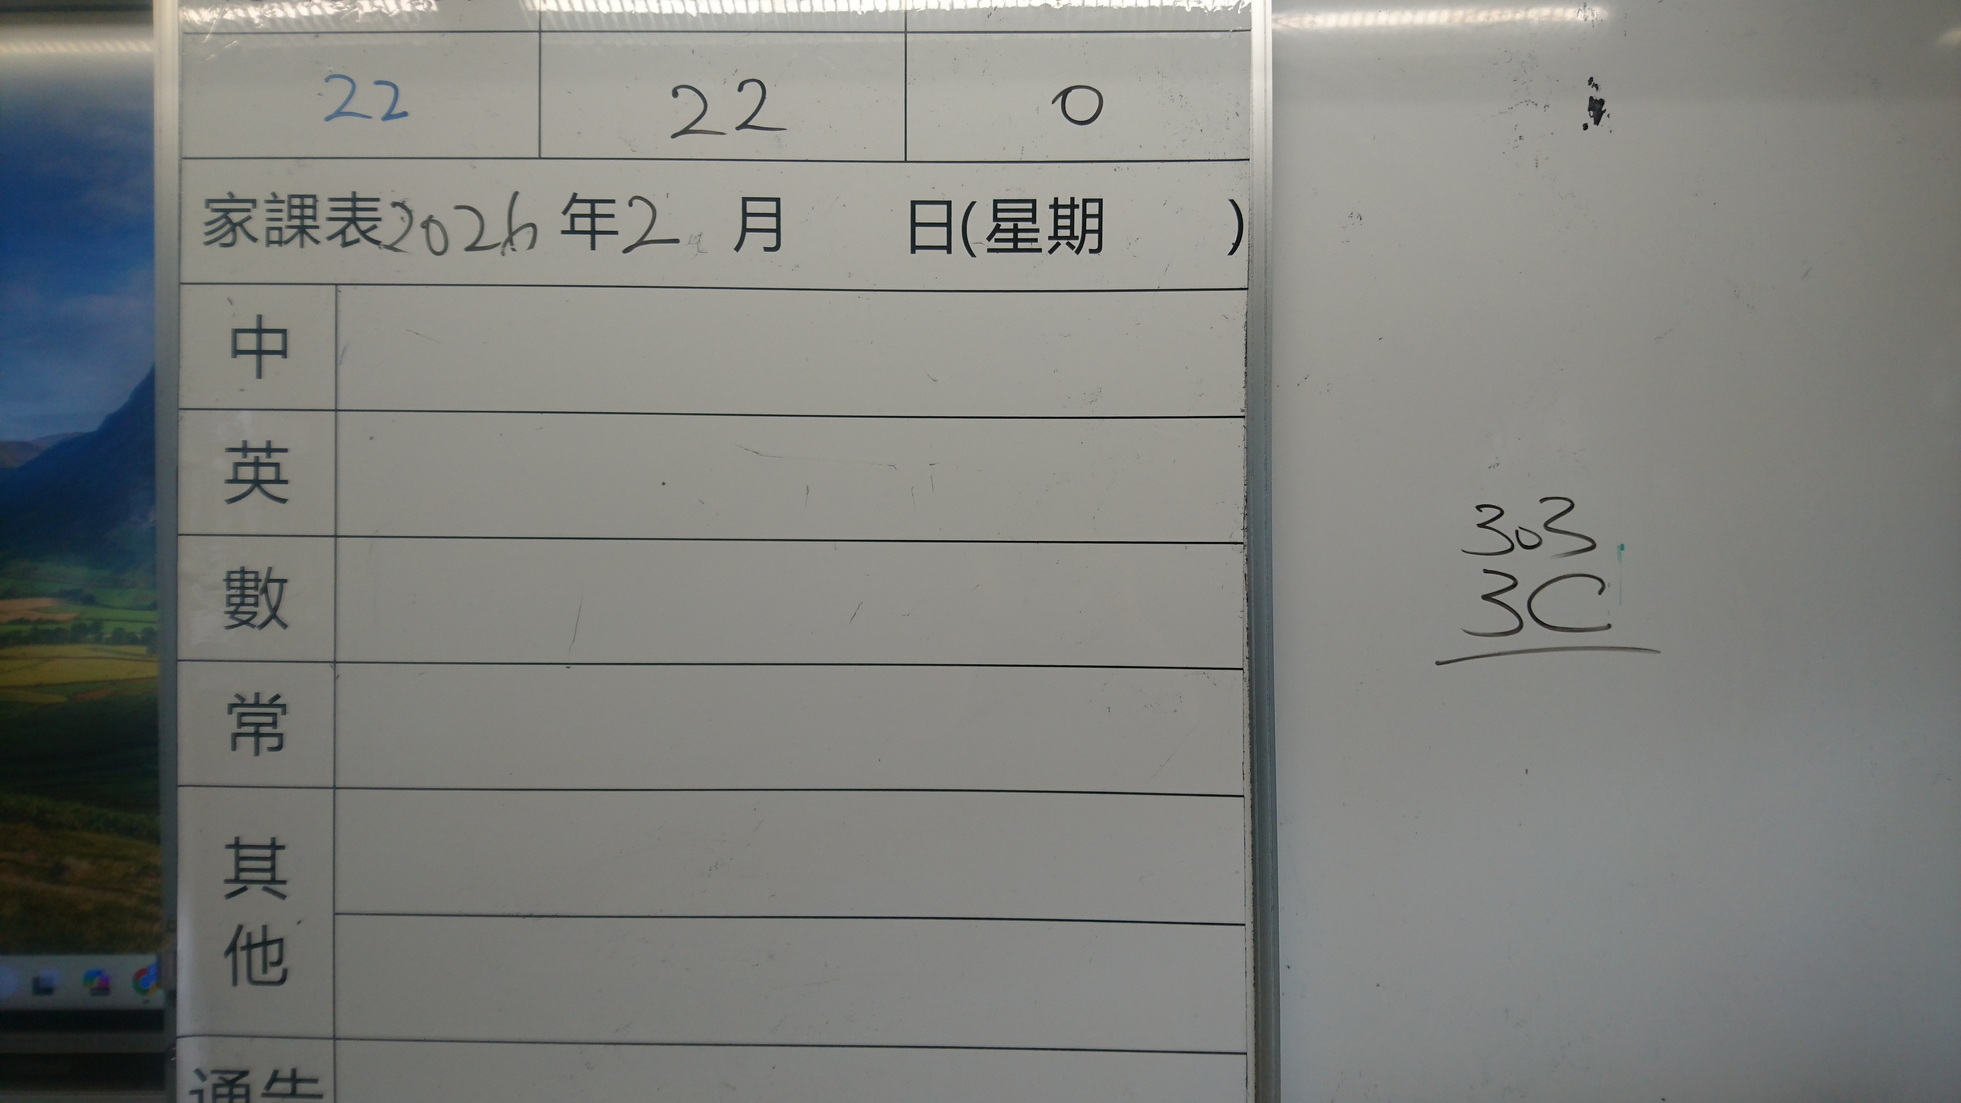 22 22 0
家課表2026年2月 日(星期 )
中
英
數
常
其他
通告
303
3C